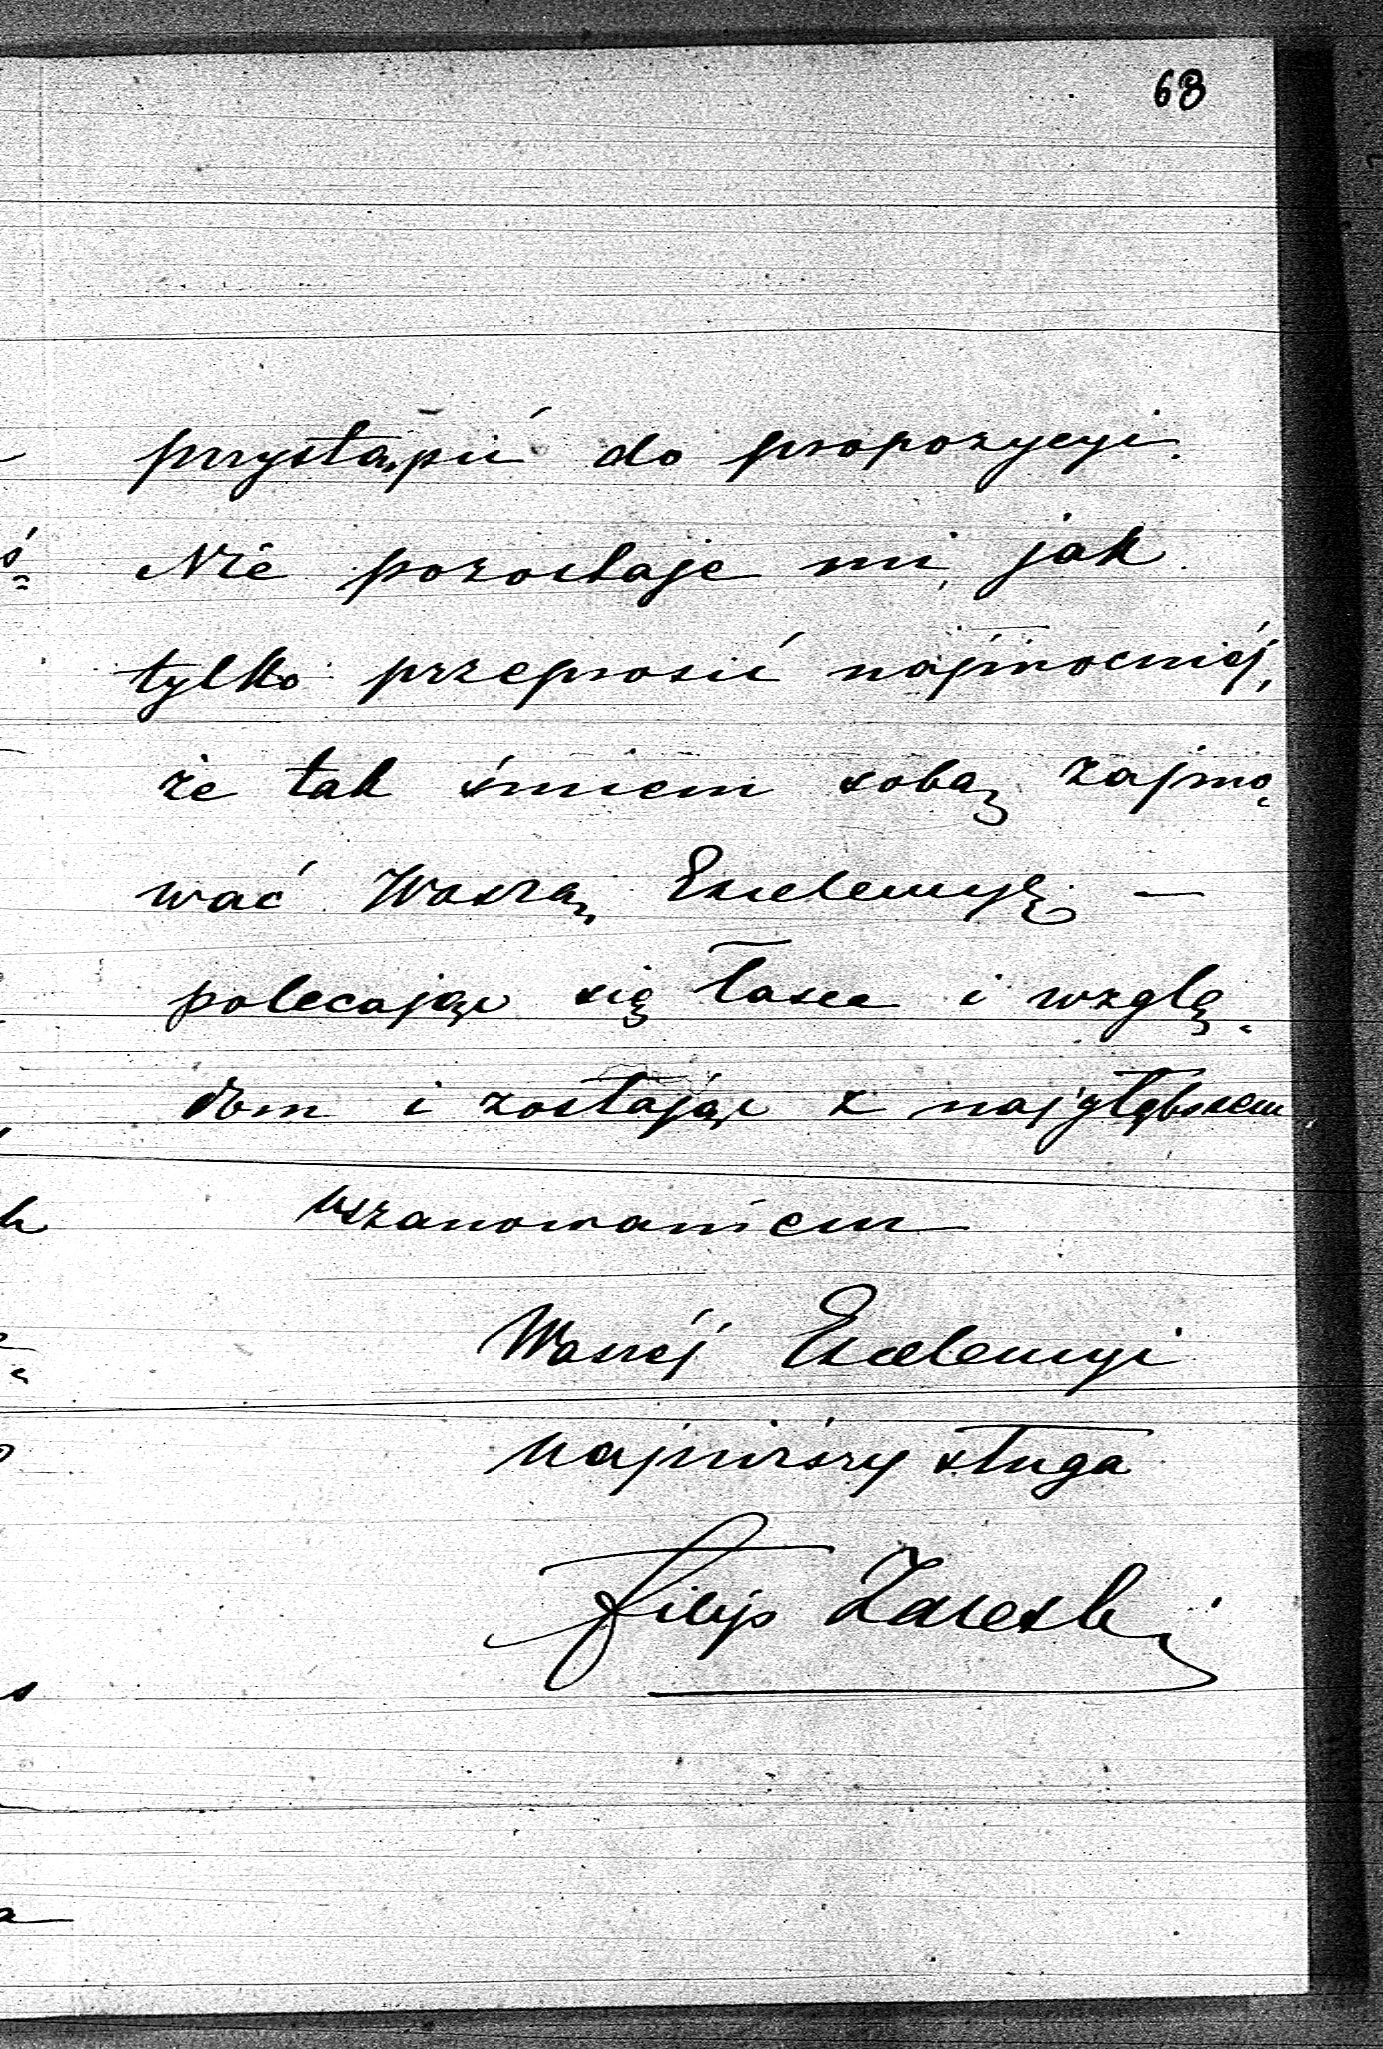 68
przystąpić do propozycyi.
Nie pozostaje mi, jak
tylko przeprosić najmocniéj,
że tak śmiem sobą zajmo-
wać Waszą Excelencyę —
polecając się łasce i wzglę-
dom i zostając z najgłębszem
uszanowaniem
Waszéj Excelencyi
najniższy sługa
Filip Zaleski